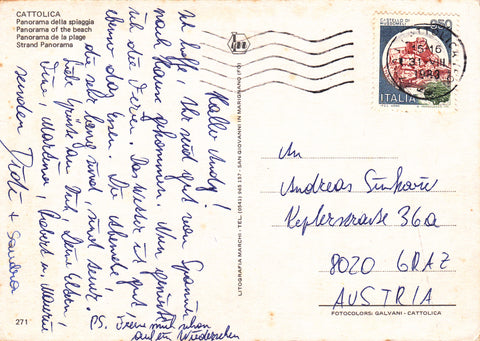 CATTOLICA
Panorama della spiaggia
Panorama of the beach
Panorama de la plage
Strand Panorama
Hallo Andy!
Ich hoffe Ihr seid gut von Spanien
nach Hause gekommen. Nun genießt
ich die Ferien. Das Wetter ist gut,
ebenso das Essen. Die Abende,
die sehr lang sind, sind super.
Liebe Grüße an Dich, Deine Eltern,
Tina, Martina, Robert u.
senden Didi + Sandra
PS. Freue mich schon
auf ein Wiedersehen
271
LITOGRAFIA MARCHI - TEL. (0541) 965.157 - SAN GIOVANNI IN MARIGNANO (FO)
850
ITALIA
15-16
31 VIII
1989
An
Andreas
Keplerstrasse 36a
8020 GRAZ
AUSTRIA
FOTOCOLORS: GALVANI - CATTOLICA